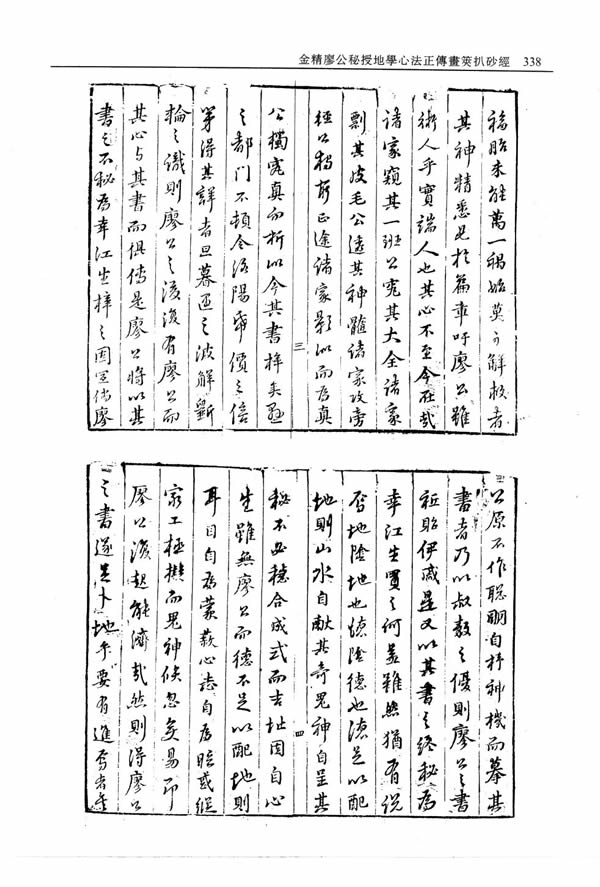 金精廖公秘授地學心法正傳畫筴扒砂經 338
福貽未能萬一禍始莫之解救者
其神精悉見於篇章吁廖公雖
術人乎實端人也其心不至今在哉
諸家窺其一班公究其大全諸家
剽其皮毛公透其神髓諸家攻旁
徑公獨窮正途諸家影似而為真
公獨究真而析似今其書梓矣
之都門不頓令洛陽帋價之倍
第得其詳者旦暮遇之波解斲
輪之識則廖公之後復有廖公而
其心与其書而俱傳是廖公將以其
書之不秘為幸江生梓之固宜倘廖
三
公原不作聰明自抒神機而摹其
書者乃以叔敖之優則廖公之書
祗貽伊慼是又以其書之終秘為
幸江生買之何益雖然猶有說
焉地陰地也德陰德也德足以配
地則山水自献其奇鬼神自呈其
秘不必穩合成式而吉址因自心
生雖無廖公而德不足以配地則
耳目自為蒙蔽心志自為昏惑縱
家工極擬而鬼神倏忽矣易即
廖公復起能濟哉然則得廖公
之書遂足卜地乎要有進焉者
四